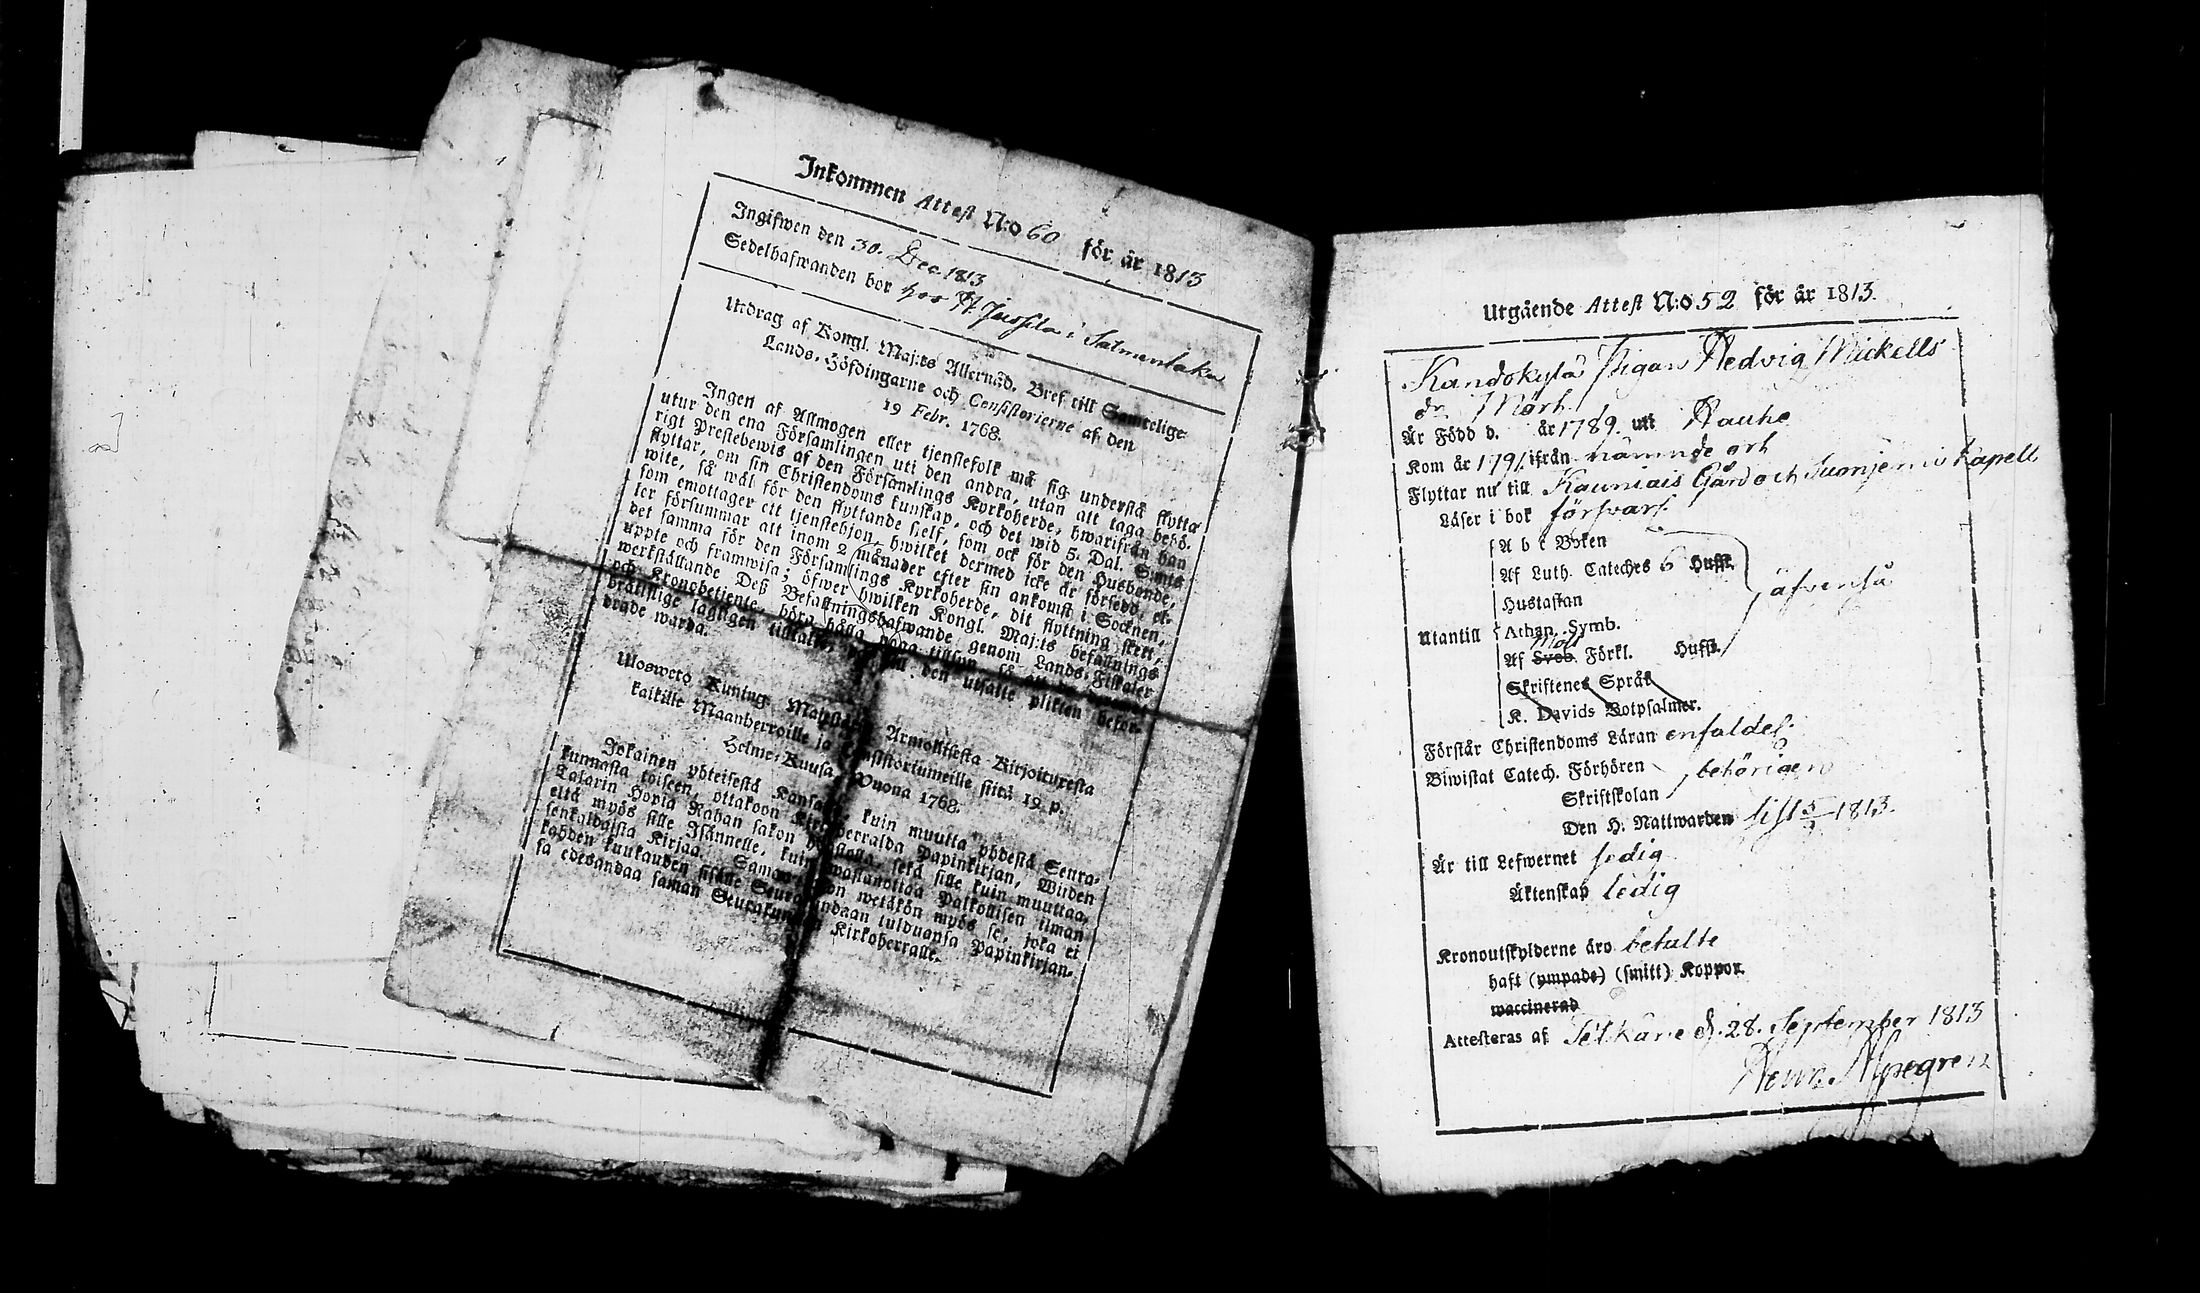 Inkommen Attest N:o 60 för år 1813
Ingifwen den 30. Dec. 1813
Sedelhafwanden bor hos H. Jussila i Salmentaka
Utdrag af Kongl. Maj:ts Allernåd. Bref till Samtelige
Lands-Höfdingarne och Consistorierne af den
19 Febr. 1768.
Ingen af Allmogen eller tjenstefolk må sig understå flytta
utur den ena Församlingen uti den andra, utan att taga behö-
rigt Prestebewis af den Församlings Kyrkoherde, hwarifrån han
flyttar, om sin Christendoms kunskap, och det wid 5. Dal. S:mts
wite, så wäl för den flyttande sielf, som ock för den Husbonde,
som emottager ett tjenstehjon, hwilket dermed icke är försedd, el-
ler försummar att inom 2 månader efter sin ankomst i Socknen,
det samma för den Församlings Kyrkoherde, dit flyttning skett,
uppte och framwisa; öfwer hwilken Kongl. Maj:ts befallnings
werkställande Deß Befallningshafwande genom Lands-Fiskaler
och Kronobetjente, böra hålla noga tillsyn, så att de
bråttslige lagligen tilltalte, den utsatte plikten beför-
drade warda.
Uloswero Kuning. Majest. Armollisesta Kirjoituresta
kaikille Maanherroille ja Consistoriumeille siitä 19. p.
Helme-Kuusa Wuona 1768.
Jokainen yhteisestä Kansasta kuin muutta yhdestä Seura-
kunnasta toiseen, ottakoon Kirkkoherralda Papinkirjan, Wijden
Talarin Hopia Rahan sakon haastolla, sekä sille kuin muuttaa,
että myös sille Isännelle, kuin wastanottaa Palkollisen ilman
senkaldaista Kirjaa. Saman sakon wetäkön myös se, joka ei
kahden kuukauden sisälle Seurakundaan tulduansa Papinkirjan-
sa edesandaa saman Seurakunnan Kirkoherralle.
Utgående Attest N:o 52 för år 1813.
Kandokylä Pigan Hedvig Mickells
dr Mörk
Är Född d. år 1789. uti Hauho
Kom år 1791. ifrån nämnde ort
Flyttar nu till Kauniais Gård och Suonjemi Kapell
Läser i bok försvarl.
A b c Boken
Af Luth. Cateches 6 Hufst.
Hustaflan
äfvenså
Utantill Athan. Symb.
Moll
Af Sveb. Förkl. Hufst.
Skriftenes Språk
K. Davids Botpsalmer.
Förstår Christendoms Läran enfaldel.
Biwistat Catech. Förhören
behörigen
Skriftskolan
Den H. Nattwarden sist 5/9 1813.
Är till Lefwernet sedig
Äktenskap ledig
Kronoutskylderne äro betalte
haft (ympade) (smitt) Koppor.
waccinerad
Attesteras af Sélkäne d. 28. September 1813
Henr.